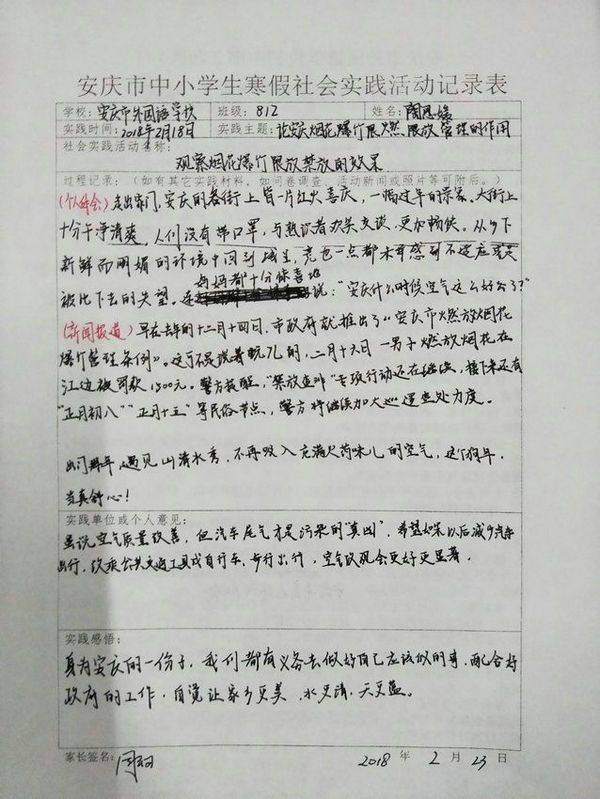 安庆市中小学生寒假社会实践活动记录表
学校：安庆市外国语学校 班级：812 姓名：陶思媛
实践时间：2018年2月18日 实践主题：论安庆烟花爆竹限燃、限放管理的作用
社会实践活动名称：
观察烟花爆竹限放禁放的效果
过程记录：（如有其它实践材料，如问卷调查、活动新闻或照片等可附后。）
(个人体会)走出家门，安庆的各街上皆一片红火喜庆，一幅过年的景象。大街上
十分干净清爽，人们没有带口罩，与熟识者欢笑交谈，更加畅快。从乡下
新鲜而明媚的环境中回到城里，竟也一点都未感到不适应
妈妈都十分惊喜地
被比下去的失望。连说：“安庆什么时候空气这么好么了？”
(新闻报道)早在去年的十二月十四日，市政府就推出了《安庆市燃放烟花
爆竹管理条例》。这可不是说着玩儿的，二月十六日一男子燃放烟花在
江边被罚款1500元。警方提醒，“禁放查处”专项行动还在继续，接下来还有
“正月初八”“正月十五”等民俗节点，警方将继续加大巡逻查处力度。
出门拜年遇见山清水秀，不再吸入充满火药味儿的空气，这个狗年，
当真舒心！
实践单位或个人意见：
虽说空气质量改善，但汽车尾气才是污染的“真凶”，希望如果以后减少汽车
出行，改乘公共交通工具或自行车、步行出行，空气效果会更好更显著。
实践感悟：
身为安庆的一份子，我们都有义务去做好自己应该做的事，配合好
政府的工作，自觉让家乡更美，水更清，天更蓝。
家长签名： 2018 年 2 月 23 日